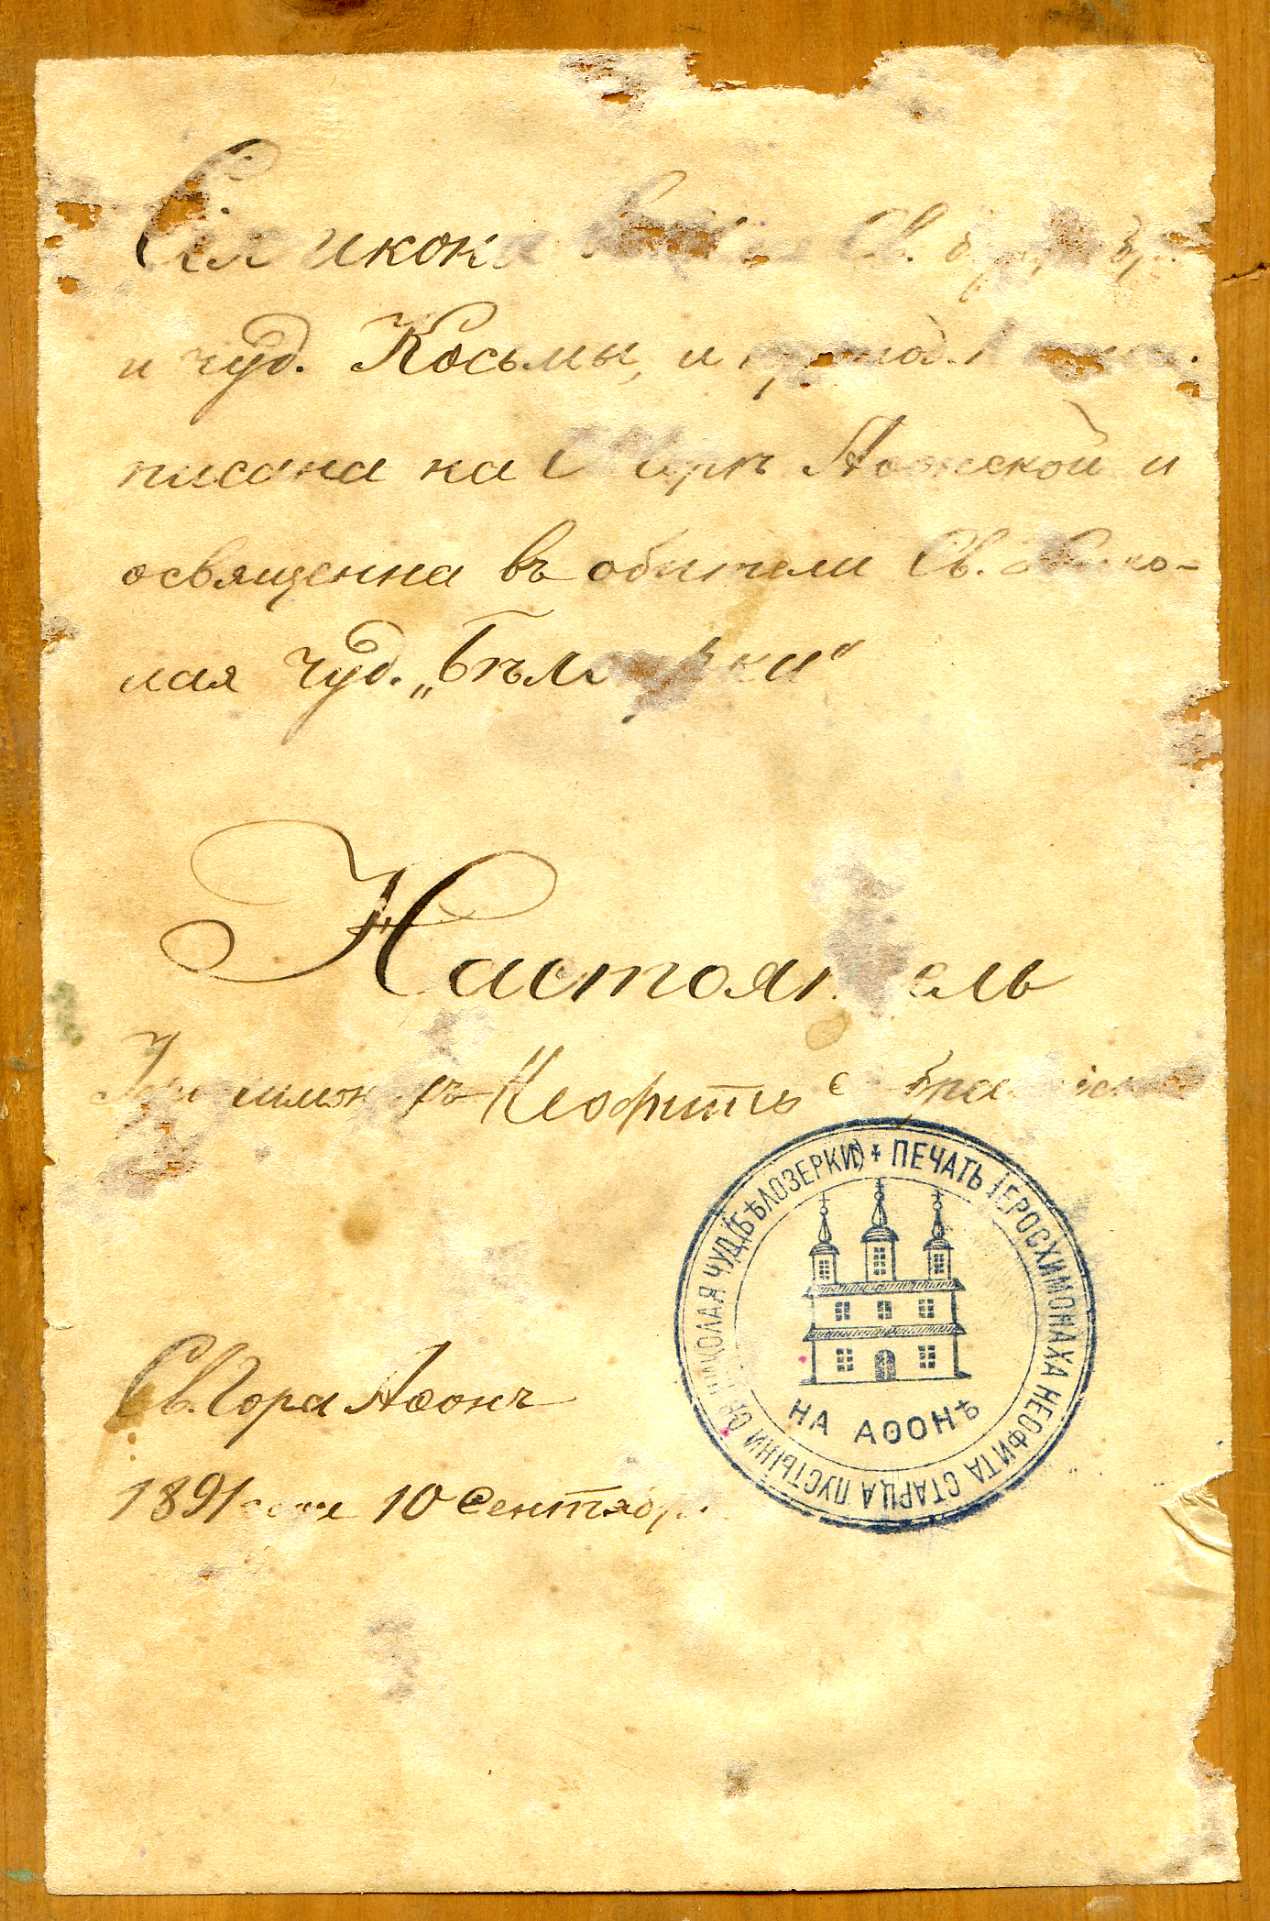 Сія икона Св.
и чуд. Косьмы, и
писана на Аѳонской и
освященна въ обители Св. Нико-
лая чуд. „Бѣлозерки“
Настоятель
Неофитъ съ
ПЕЧАТЬ ІЕРОСХИМОНАХА НЕОФИТА СТАРЦА ПУСТЫНИ СВЯТ НИКОЛАЯ ЧУД(БѢЛОЗЕРКИ)
НА АѲОНѢ
Св. Гора Аѳонъ
1891 10 Сентября